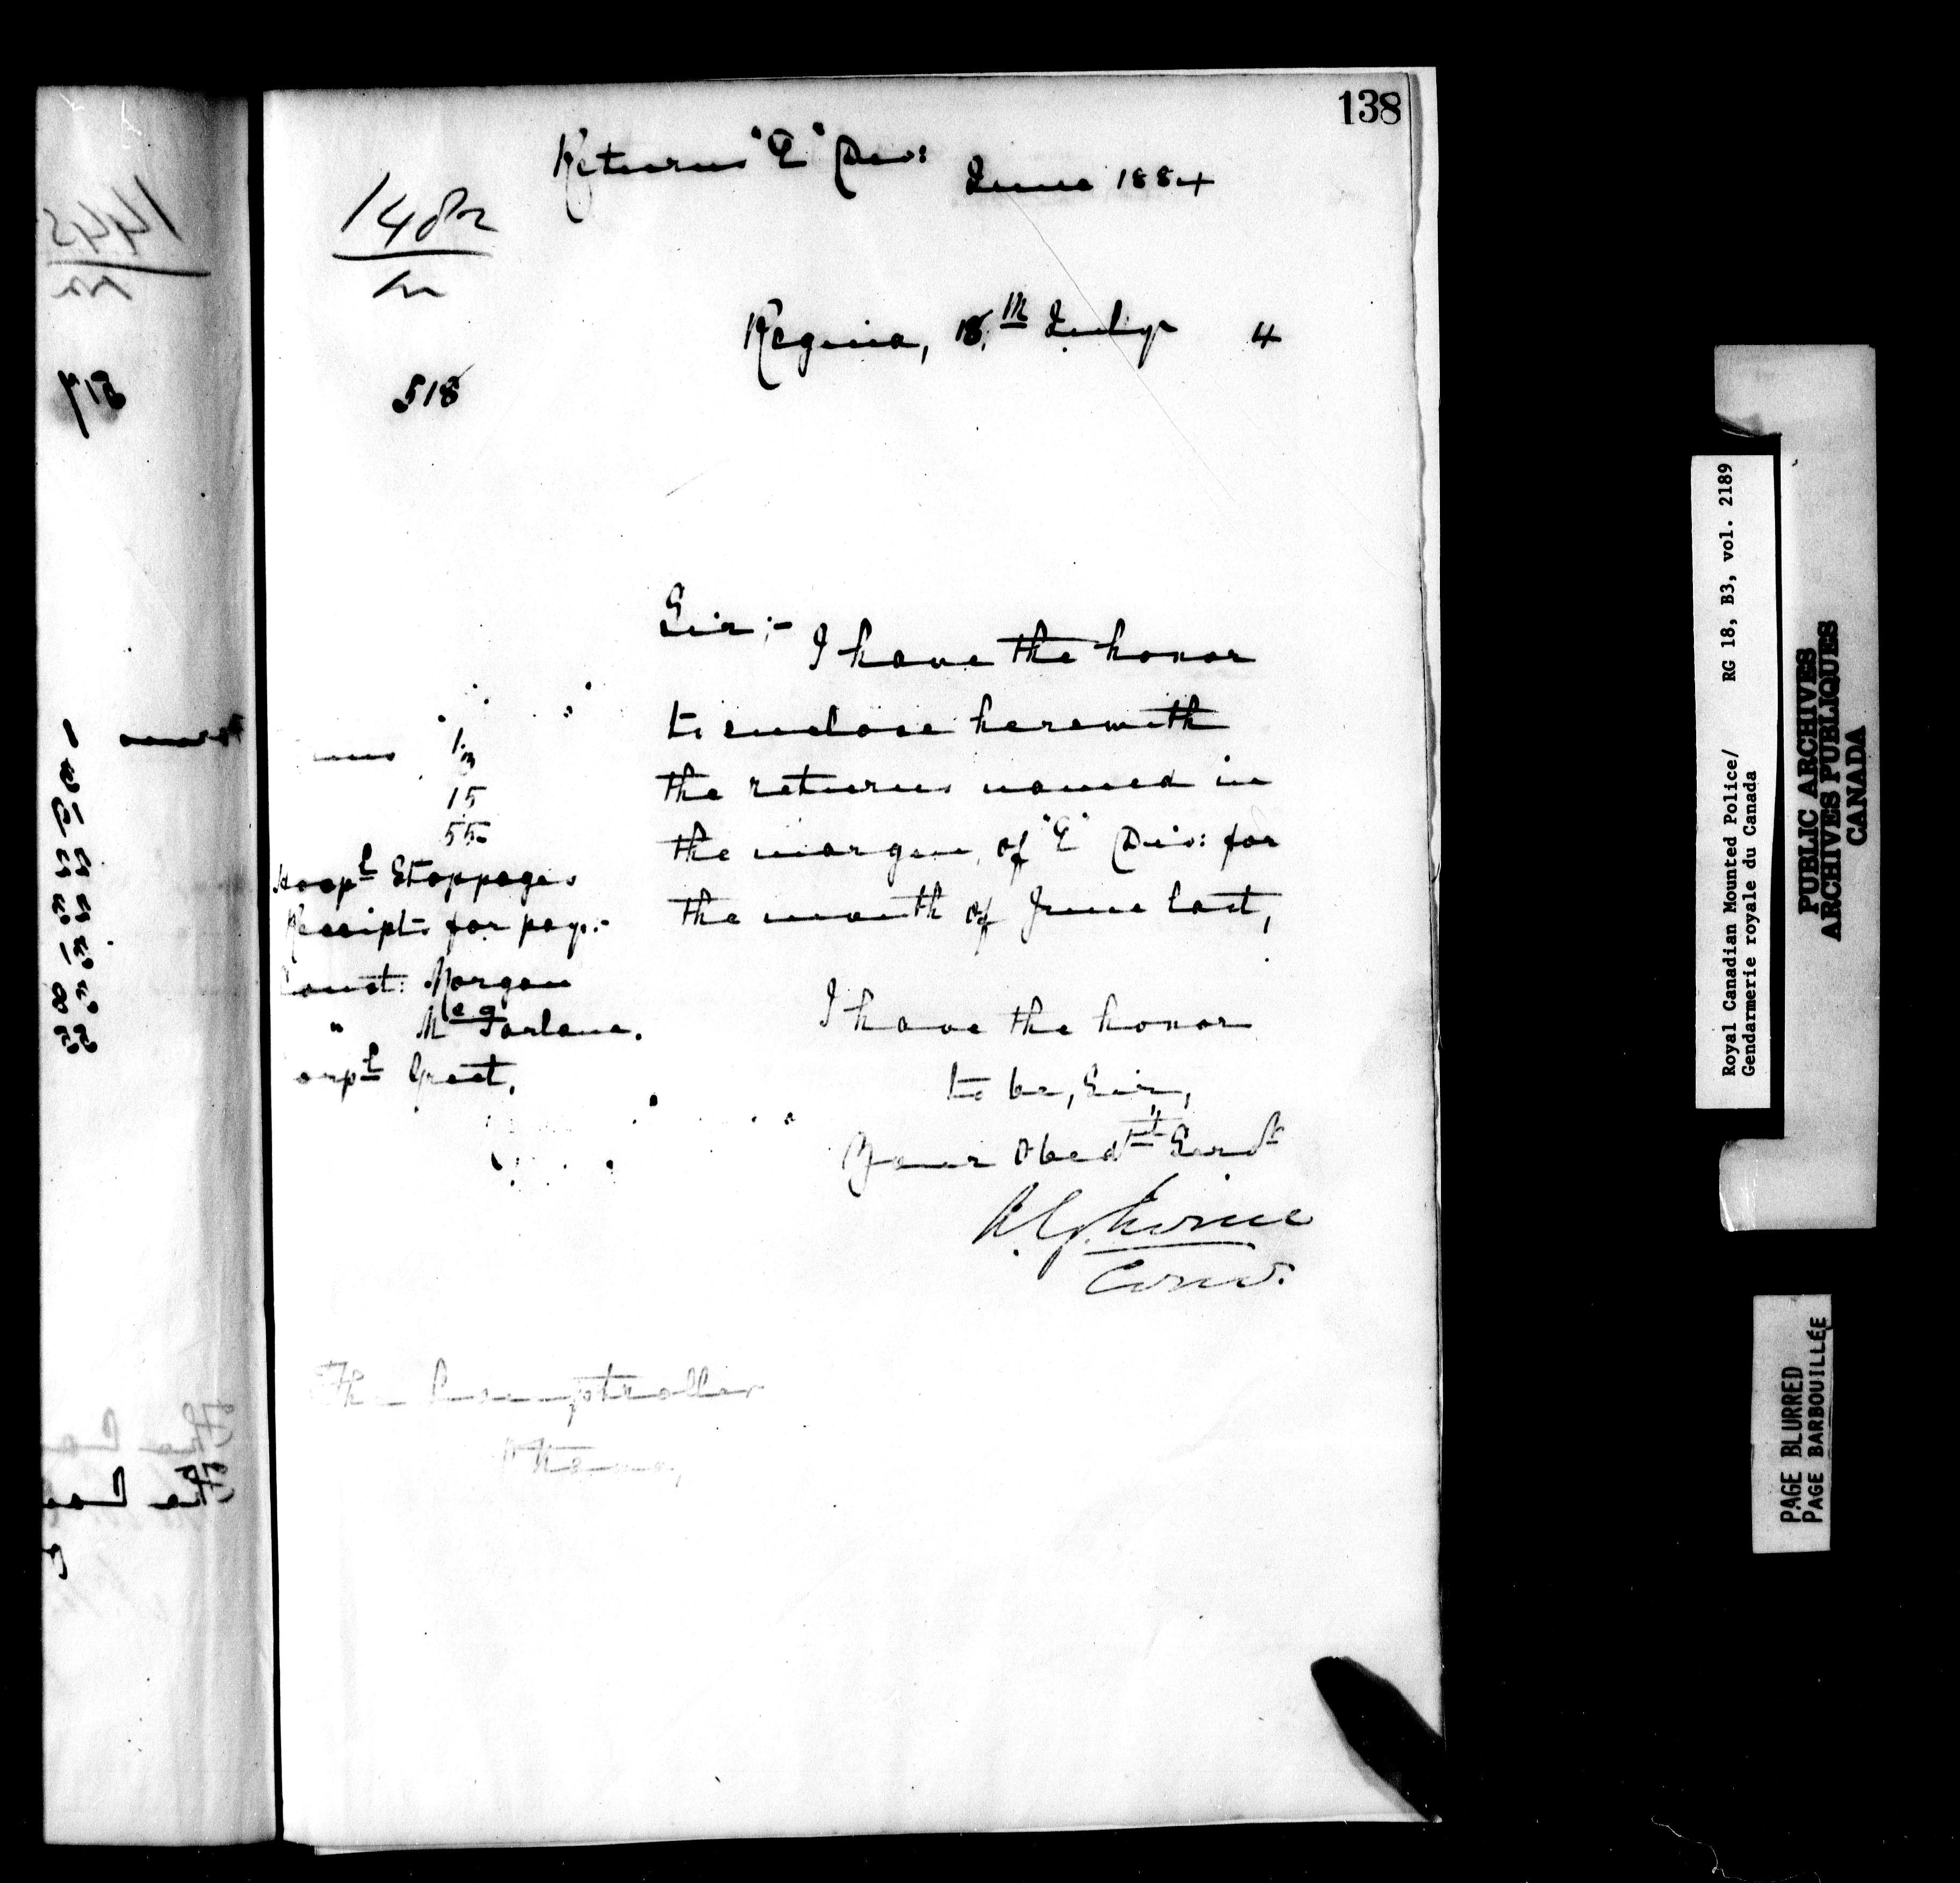 138
Returns "E" Div:
June 1884
1482
Regina, 18th July 4
518
Sir;-
I have the honor
to enclose herewith
the returns named in
the margin, of "E" Div: for
the month of June last,
1
3
15
55
Hospl Stoppages
Receipts for pay:-
Const: Morgan
" McFarlane.
orpl Greet,
I have the honor
to be, Sir,
Your Obedt Servt
A.G. Irvine
Comr.
The Comptroller
Ottawa,
517
1445
Royal Canadian Mounted Police/ RG 18, B3, vol. 2189
Gendarmerie royale du Canada
PUBLIC ARCHIVES
ARCHIVES PUBLIQUES
CANADA
PAGE BLURRED
PAGE BARBOUILLÉE